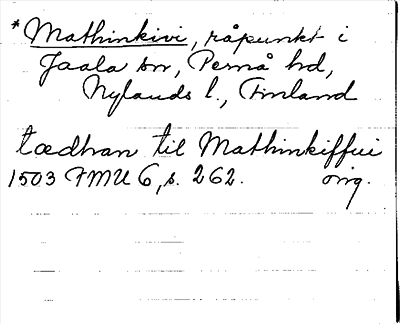 * Mathinkivi, råpunkt i
Jaala sn, Pernå hd,
Nylands l., Finland
tædhan til Mathinkiffui
1503 FMU 6, s. 262. orig.